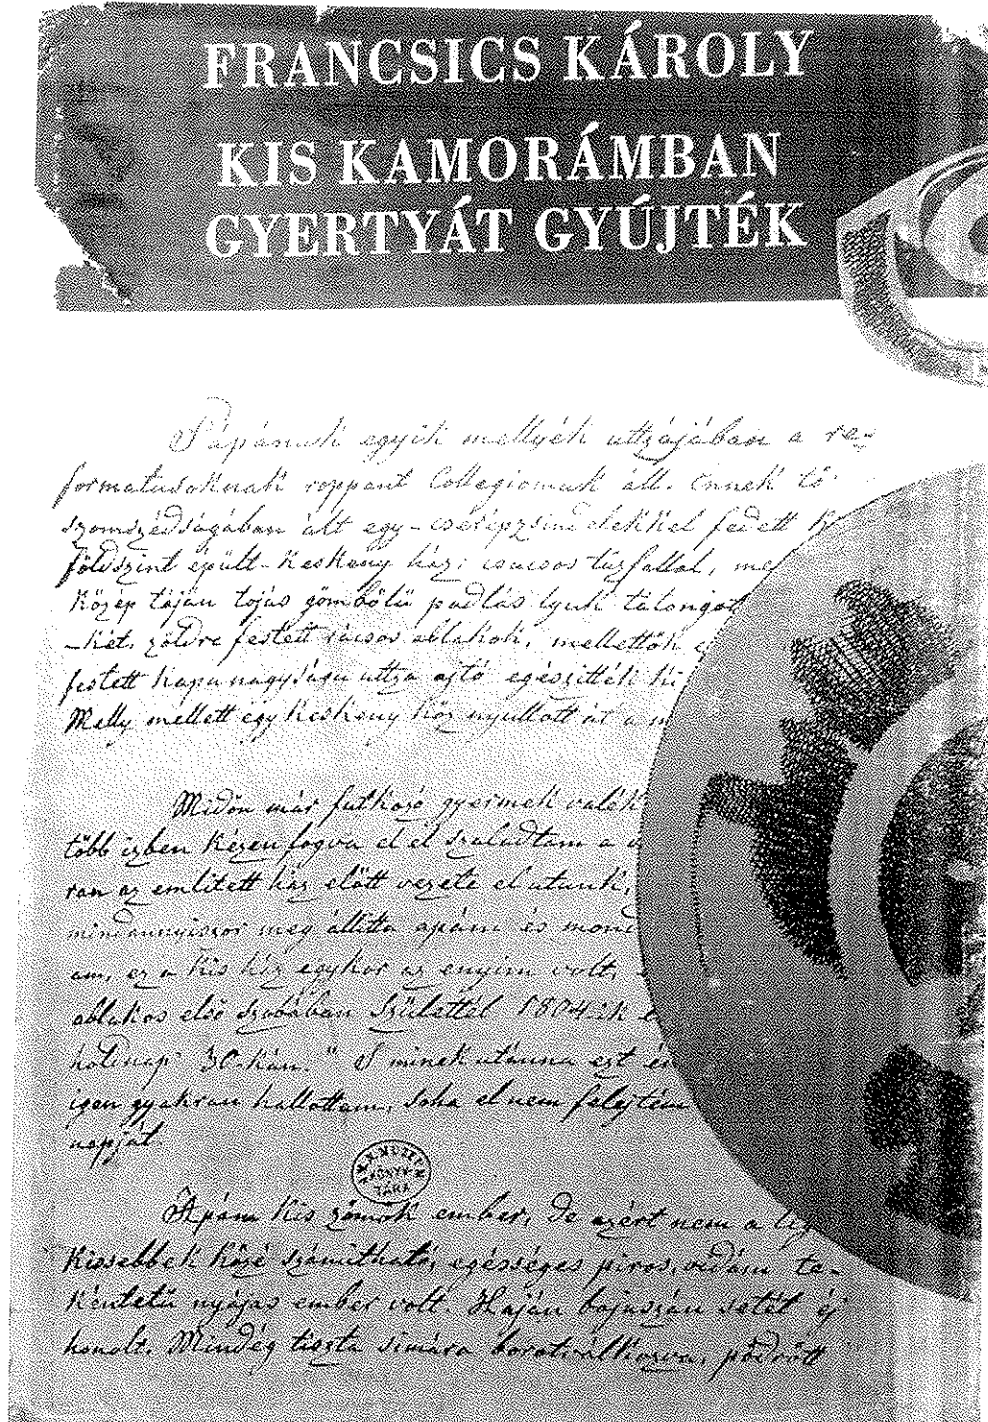 FRANCSICS KÁROLY
KIS KAMORÁMBAN
GYERTYÁT GYÚJTÉK
Pápának egyik mellyék uttzájában a re-
formatusoknak roppant Collegiomuk áll. Ennek tő
szomszédságában ált egy-cserépzsindelekkel fedett
földszint épült-keskeny ház: csúcsos tűzfallal,
Közép táján tojás gömbölü padlás lyuk tátongott
-két, zöldre festett rácsos ablakok, mellettök
festett kapu nagyságu uttza ajtó egészitték ki
Melly mellett egy keskeny köz nyullott át a
Midőn már futkozó gyermek valék
több izben Kézenfogva el él szaladtam a
ran az emlitett ház előtt vezete el utunk,
mindannyiszor meg állitta apám és mond
am, ez a kis ház egykor az enyim volt,
ablakos első szobában születtél 1804-ik
hótnap 30-kán." S minekutánna ezt
igen gyakran hallottam, soha el nem felejtém
napját.
M. N. MUZEUM
KÖNYV
TÁRA
Apám kis zömök ember, de azért nem a leg
kissebbek közé számítható, egésséges piros, vidám te-
kéntetü nyájas ember volt. Haján bajuszán setét éj
honolt. Mindég tiszta simára borotválkozva, pödrött